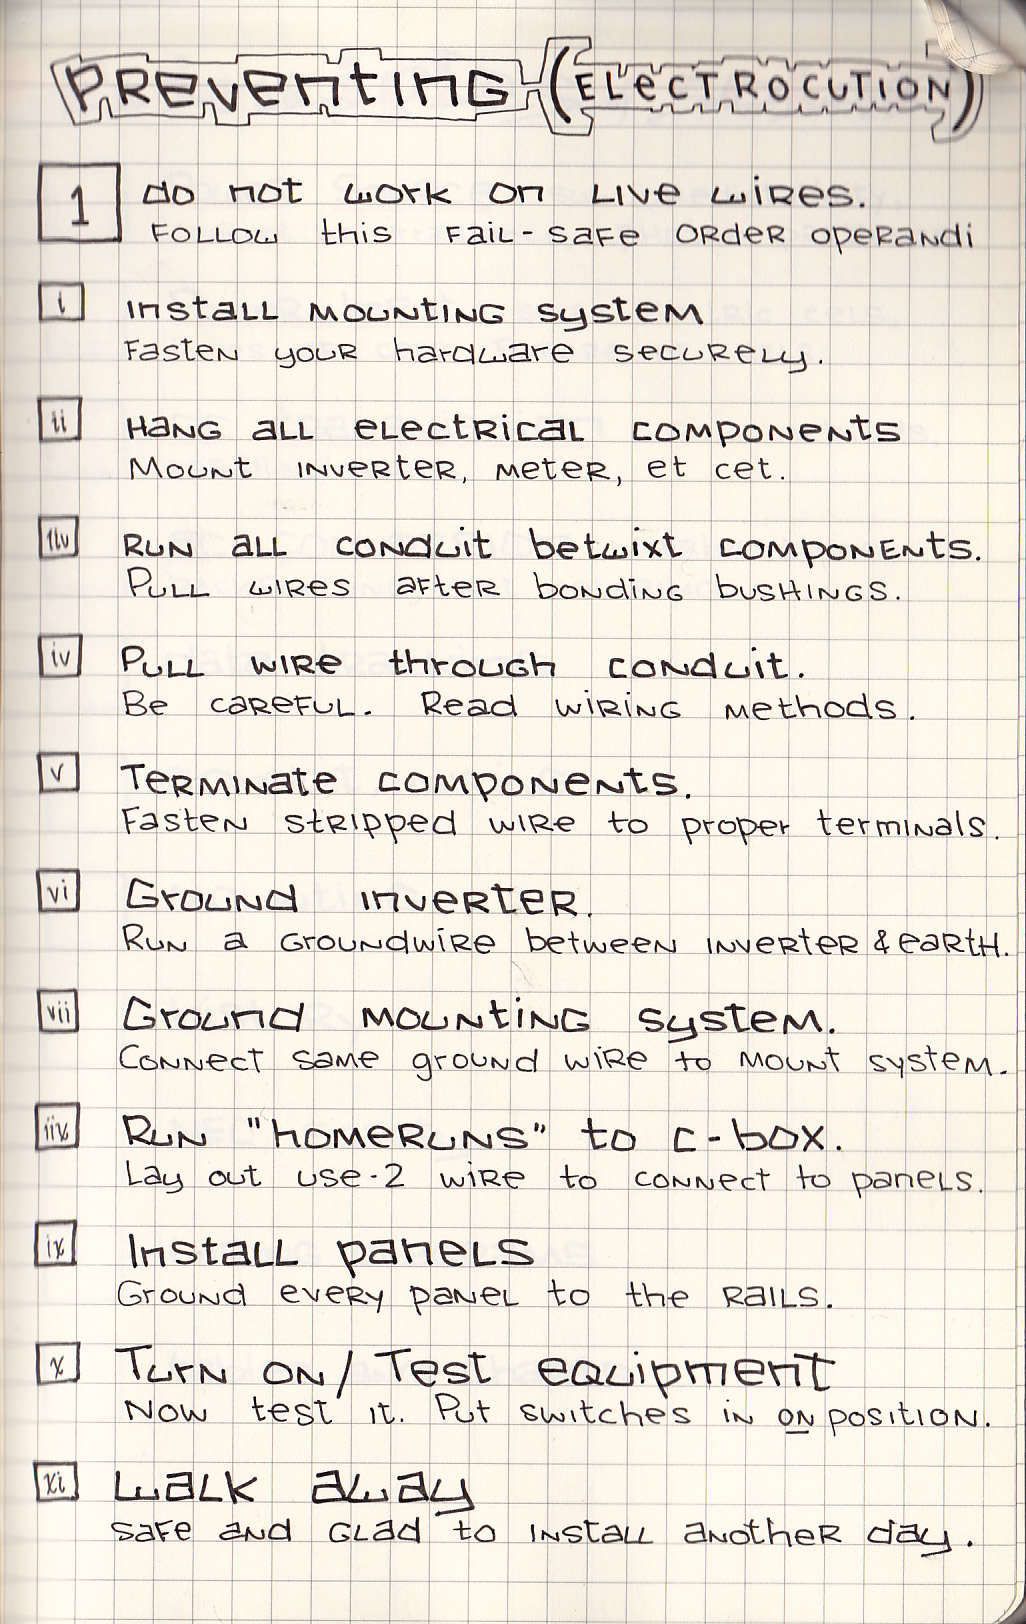 Preventing (Electrocution)
1 do not work on live wires.
Follow this fail-safe order operandi
i Install mounting system
Fasten your hardware securely.
ii Hang all electrical components
Mount inverter, meter, et cet.
iiv Run all conduit betwixt components.
Pull wires after bonding bushings.
iv Pull wire through conduit.
Be careful. Read wiring methods.
v Terminate components.
Fasten stripped wire to proper terminals.
vi Ground inverter.
Run a groundwire between inverter & earth.
vii Ground mounting system.
Connect same ground wire to mount system.
iix Run "homeruns" to c-box.
Lay out use-2 wire to connect to panels.
ix Install panels
Ground every panel to the rails.
x Turn on/Test equipment
Now test it. Put switches in on position.
xi Walk away
safe and glad to install another day.